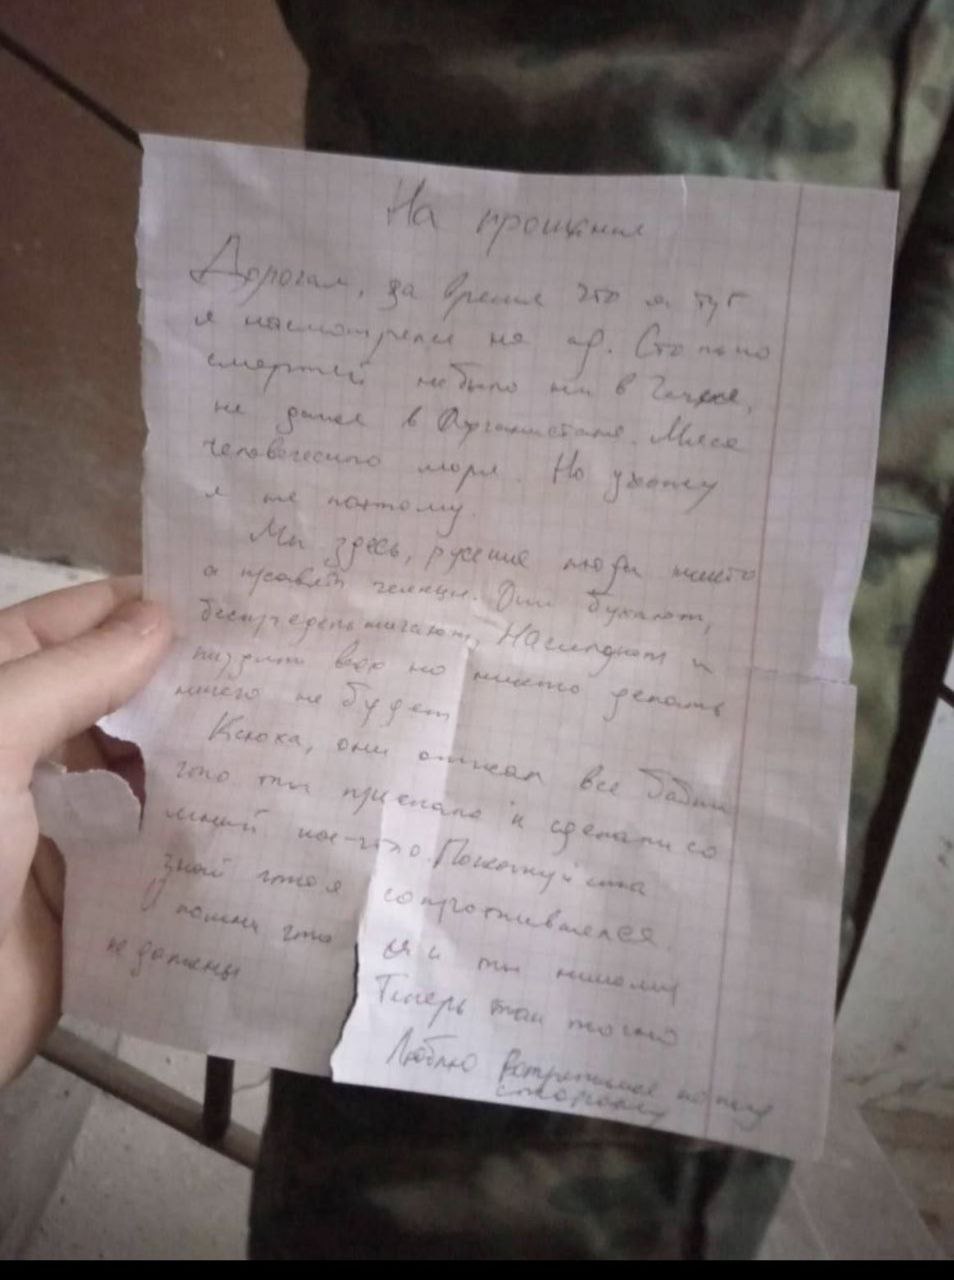 На прощание
Дорогая, за время что я тут
я насмотрелся на ад. Столько
смертей небыло ни в Чечне,
не даже в Афганистане. Мяса
человеческого море. Но ухожу
я не поэтому.
Мы здесь, русские люди никто
а правят чеченцы. Они бухают,
беспредельничают, Насилуют и
пиздят всех но никто делать
ничего не будет
Ксюха, они отжали все бабки
что ты прислала и сделали со
мной кое-что. Пожалуйста
знай что я сопротивлялся.
и помни что я и ты никому
не должны Теперь так точно
Люблю встретимся на той
стороне